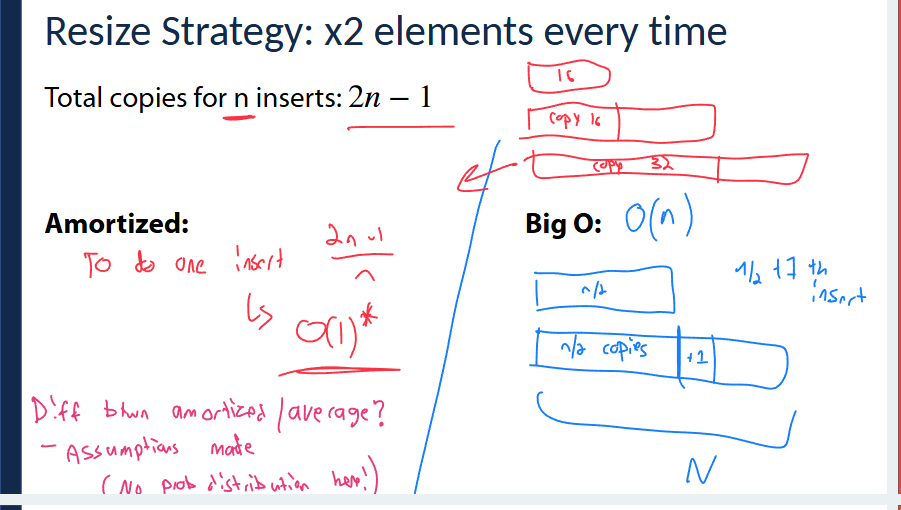 Resize Strategy: x2 elements every time
Total copies for n inserts: 2n − 1
16
copy 16
copy 32
Amortized:
To do one insert
2n -1
n
↳ O(1)*
Diff btwn amortized / average?
- Assumptions made
(No prob distribution here!)
Big O: O(n)
n/2
n/2 +1 th
insert
n/2 copies
+1
N